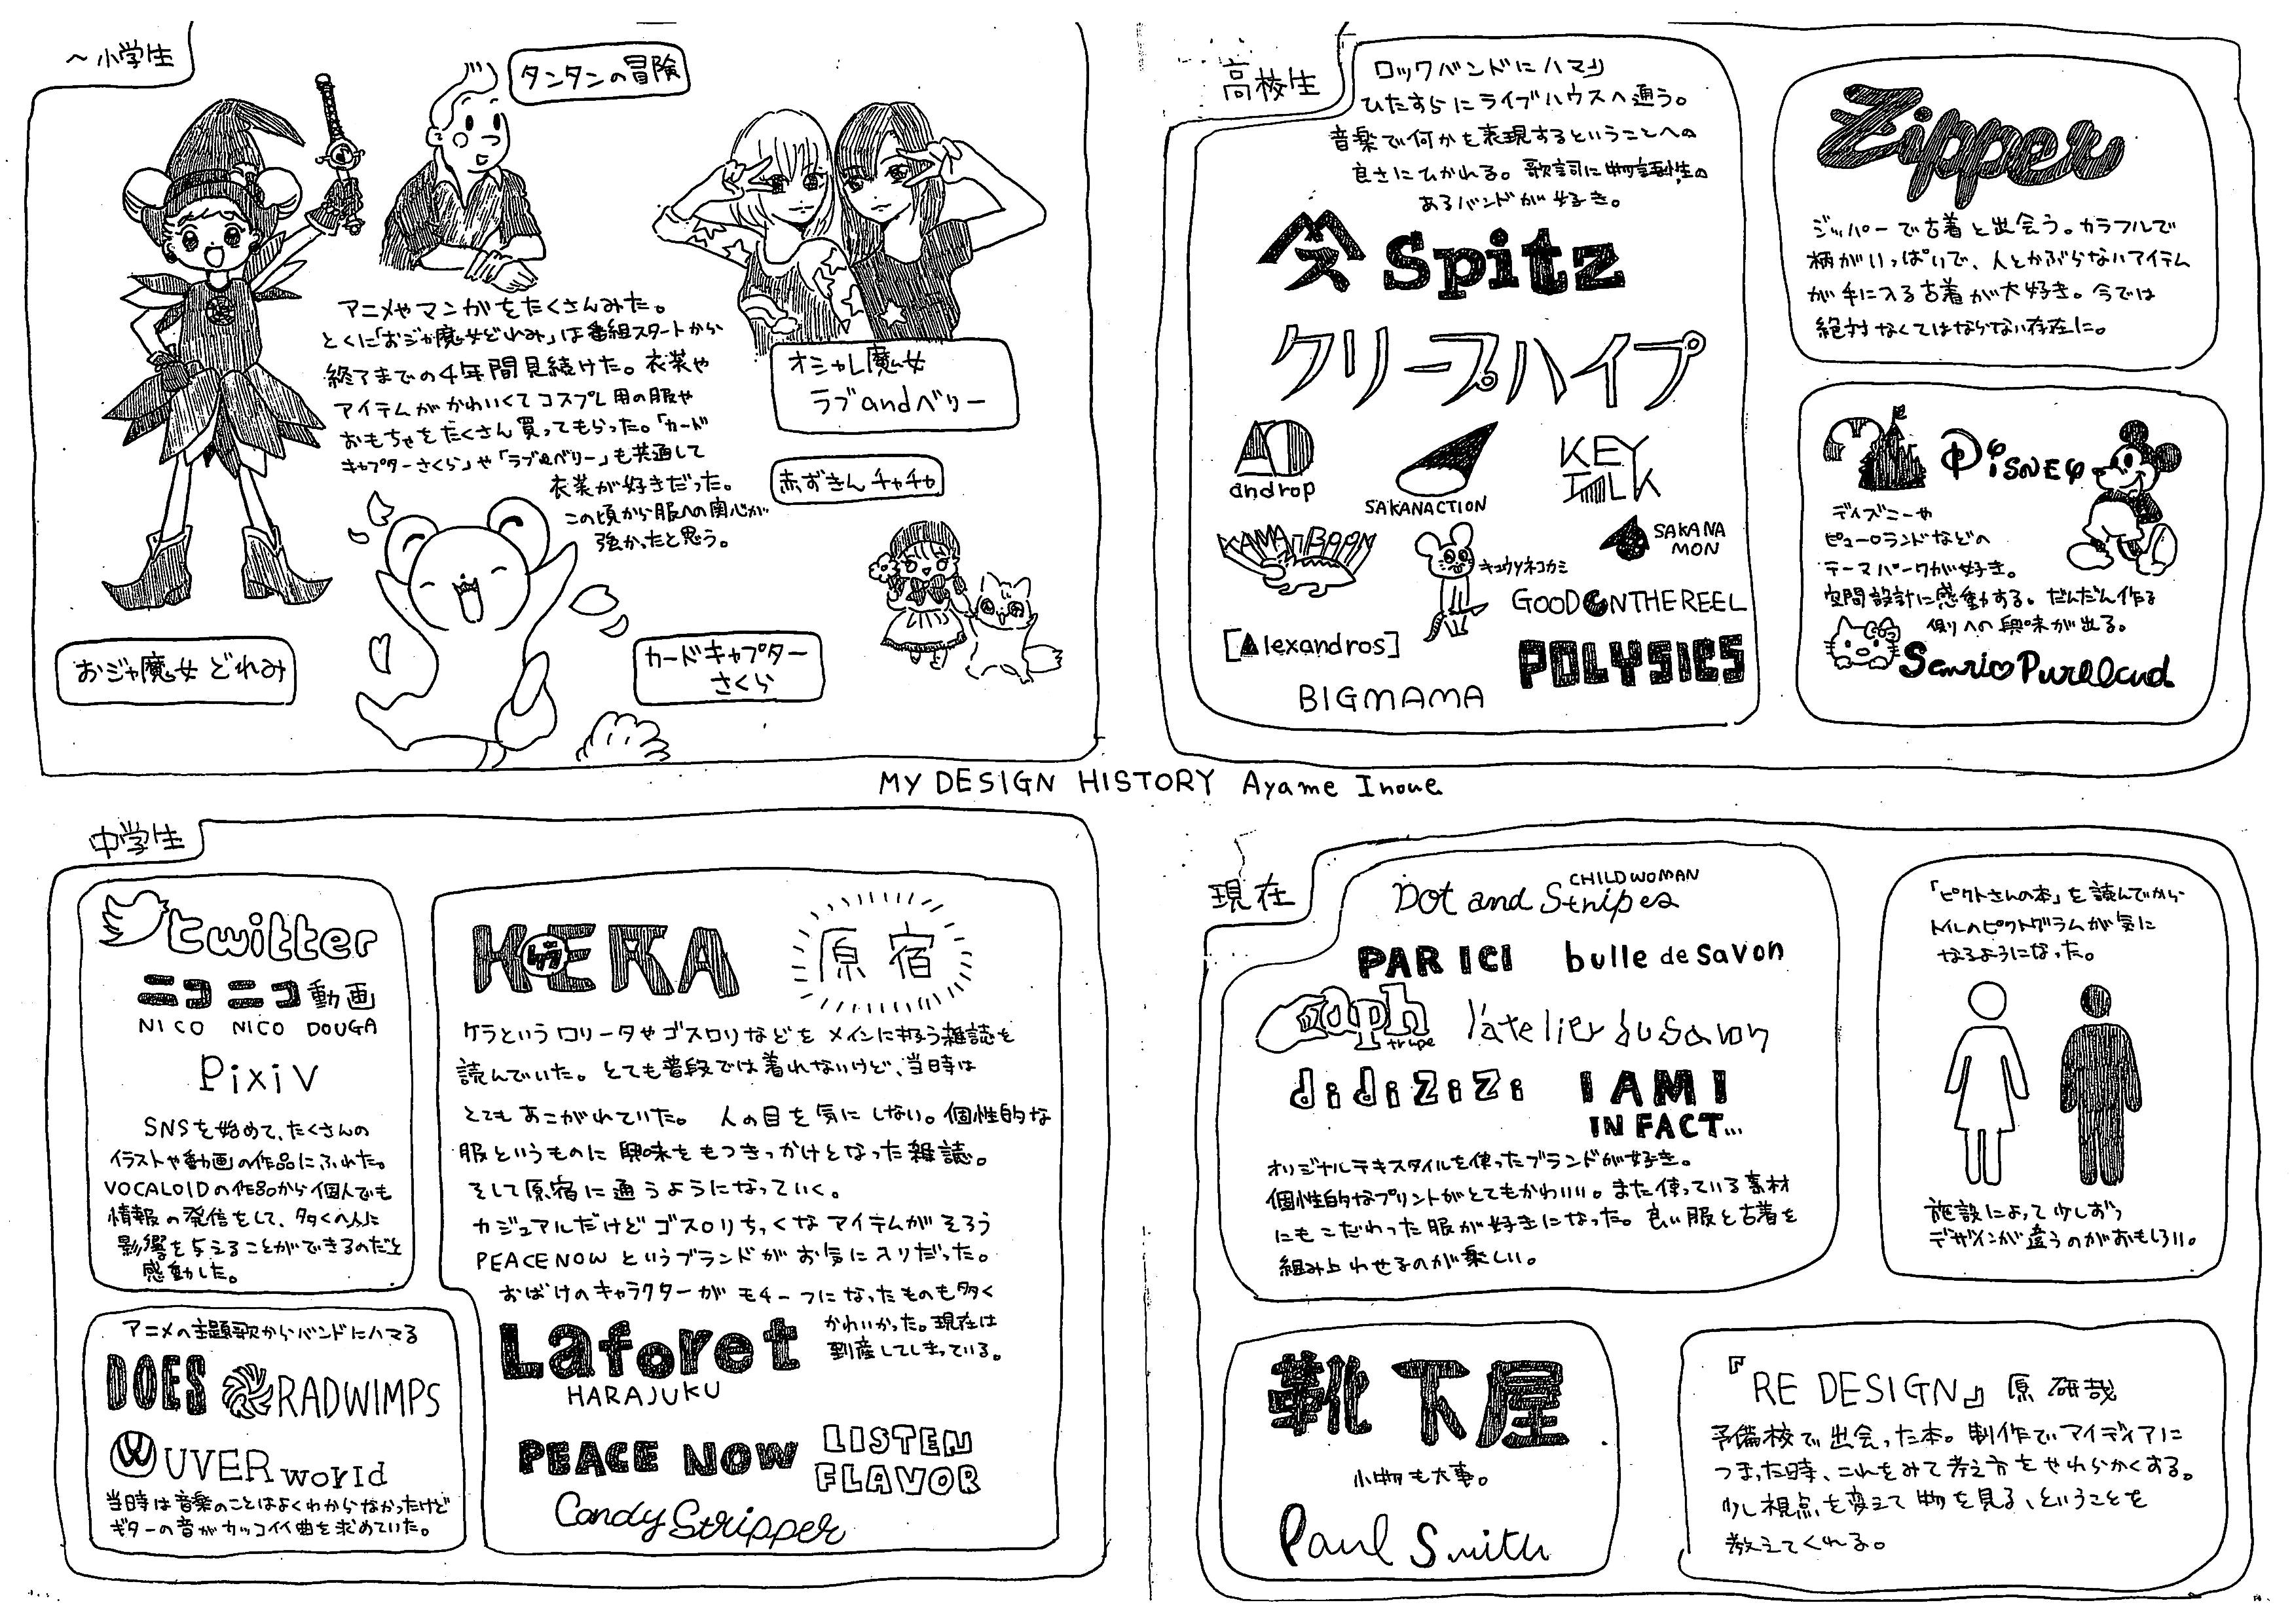 〜小学生
タンタンの冒険
アニメやマンガをたくさんみた。
とくに「おジャ魔女どれみ」は番組スタートから
終了までの4年間見続けた。衣装や
アイテムがかわいくてコスプレ用の服や
おもちゃをたくさん買ってもらった。「カード
キャプターさくら」や「ラブ&ベリー」も共通して
衣装が好きだった。
この頃から服への関心が
強かったと思う。
オシャレ魔女
ラブandベリー
赤ずきんチャチャ
おジャ魔女どれみ
カードキャプター
さくら
高校生
ロックバンドにハマり
ひたすらにライブハウスへ通う。
音楽で何かを表現するということへの
良さにひかれる。歌詞に物語性の
あるバンドが好き。
Spitz
クリープハイプ
androp
SAKANACTION
KEY
TALK
KANA-BOON
キュウソネコカミ
SAKANA
MON
GOOD ON THE REEL
[Alexandros]
POLYSICS
BIGMAMA
Zipper
ジッパーで古着と出会う。カラフルで
柄がいっぱいで、人とかぶらないアイテム
が手に入る古着が大好き。今では
絶対なくてはならない存在に。
Disney
ディズニーや
ピューロランドなどの
テーマパークが好き。
空間設計に感動する。だんだん作る
側への興味が出る。
Sanrio Puroland
MY DESIGN HISTORY Ayame Inoue
中学生
twitter
ニコニコ動画
NICO NICO DOUGA
Pixiv
SNSを始めて、たくさんの
イラストや動画の作品にふれた。
VOCALOIDの作品から個人でも
情報の発信をして、多くの人に
影響を与えることができるのだと
感動した。
アニメの主題歌からバンドにハマる
DOES
RADWIMPS
UVERworld
当時は音楽のことはよくわからなかったけど
ギターの音がカッコイイ曲を求めていた。
KERA
ケラ
原宿
ケラというロリータやゴスロリなどをメインに扱う雑誌を
読んでいた。とても普段では着れないけど、当時は
とてもあこがれていた。人の目を気にしない。個性的な
服というものに興味をもつきっかけとなった雑誌。
そして原宿に通うようになっていく。
カジュアルだけどゴスロリちっくなアイテムがそろう
PEACE NOWというブランドがお気に入りだった。
おばけのキャラクターがモチーフになったものも多く
かわいかった。現在は
倒産してしまっている。
Laforet
HARAJUKU
PEACE NOW
LISTEN
FLAVOR
Candy Stripper
現在
CHILD WOMAN
Dot and Stripes
PAR ICI
bulle de savon
l'atelier du savon
didizizi
I AM I
IN FACT...
オリジナルテキスタイルを使ったブランドが好き。
個性的なプリントがとてもかわいい。また使っている素材
にもこだわった服が好きになった。良い服と古着を
組み合わせるのが楽しい。
「ピクトさんの本」を読んでから
トイレのピクトグラムが気に
なるようになった。
施設によって少しずつ
デザインが違うのがおもしろい。
靴下屋
小物も大事。
Paul Smith
『RE DESIGN』原研哉
予備校で出会った本。制作でアイディアに
つまった時、これをみて考え方をやわらかくする。
少し視点を変えて物を見る、ということを
教えてくれる。